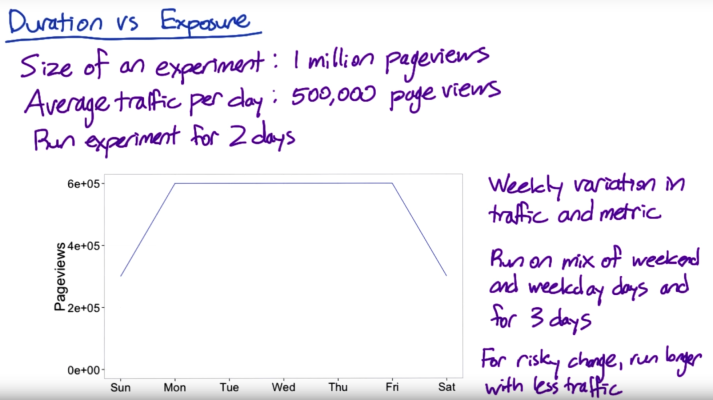 Duration vs Exposure
Size of an experiment: 1 million pageviews
Average traffic per day: 500,000 page views
Run experiment for 2 days
6e+05
4e+05
2e+05
0e+00
Pageviews
Sun Mon Tue Wed Thu Fri Sat
Weekly variation in
traffic and metric
Run on mix of weekend
and weekday days and
for 3 days
For risky change, run longer
with less traffic